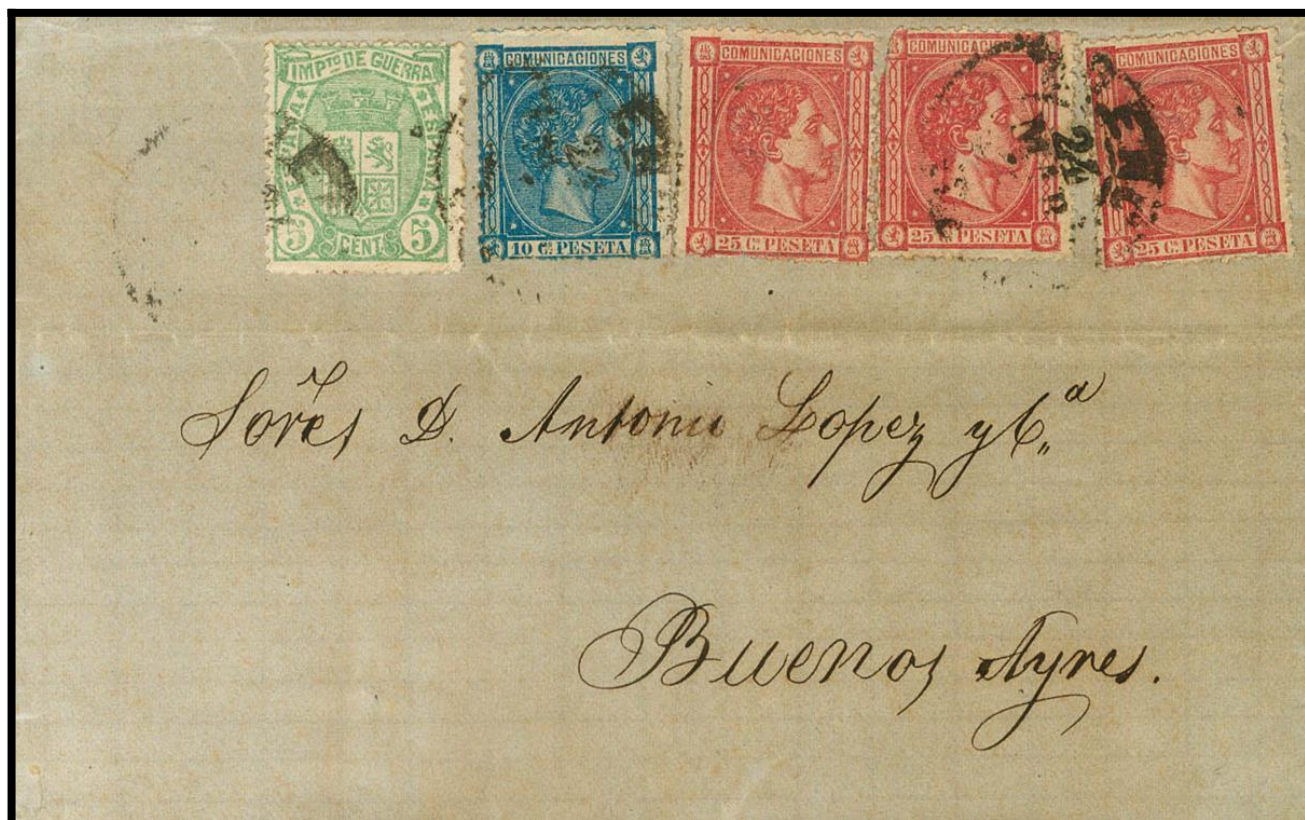 IMPTO DE GUERRA
ESPAÑA ESPAÑA
5 CENT. 5
COMUNICACIONES
10 CS PESETA
COMUNICACIONES
25 CS PESETA
COMUNICACIONES
25 CS PESETA
COMUNICACIONES
25 CS PESETA
24
Sores D. Antonio Lopez y Ca
Buenos Ayres.